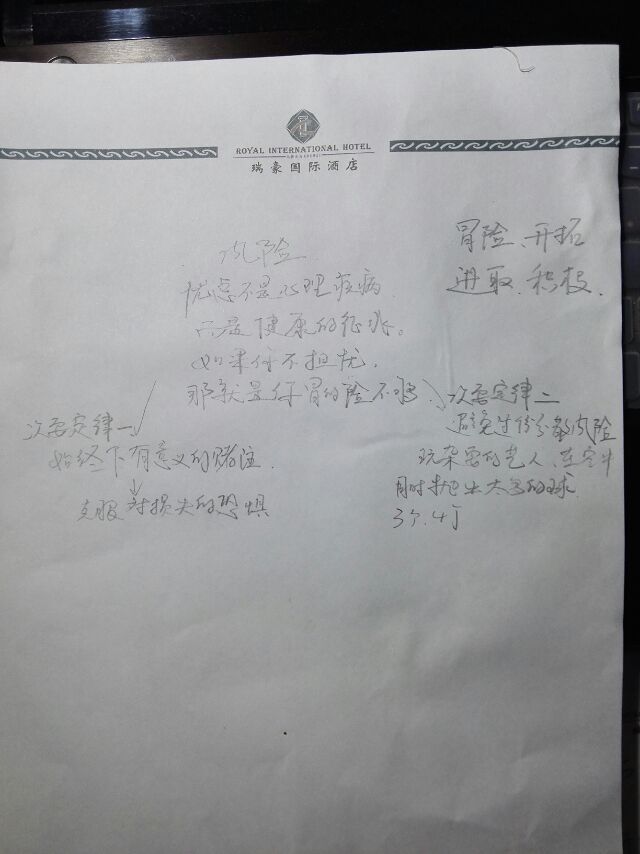 ROYAL INTERNATIONAL HOTEL
瑞豪国际酒店
冒险、开拓
进取、积极、
风险
忧虑不是心理疾病
而是健康的征兆。
如果你不担忧,
那就是你冒的险不够
次要定律一
始终下有意义的赌注
克服对损失的恐惧
次要定律二
避免过份分散风险
玩杂耍的艺人、在空中
同时抛出太多的球
3个、4个